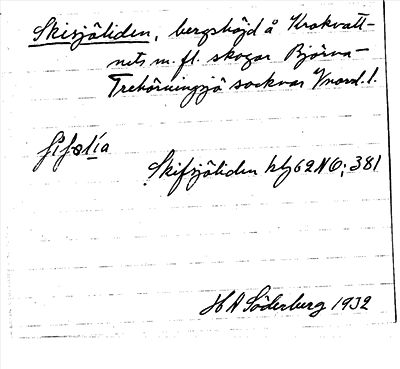 Skisjöliden, bergshöjd å Krokvatt-
nets m.fl. skogar Björna-
Trehörningsjö socknar
Skifsjöliden hbj 62 NO; 381
HA Söderberg 1932